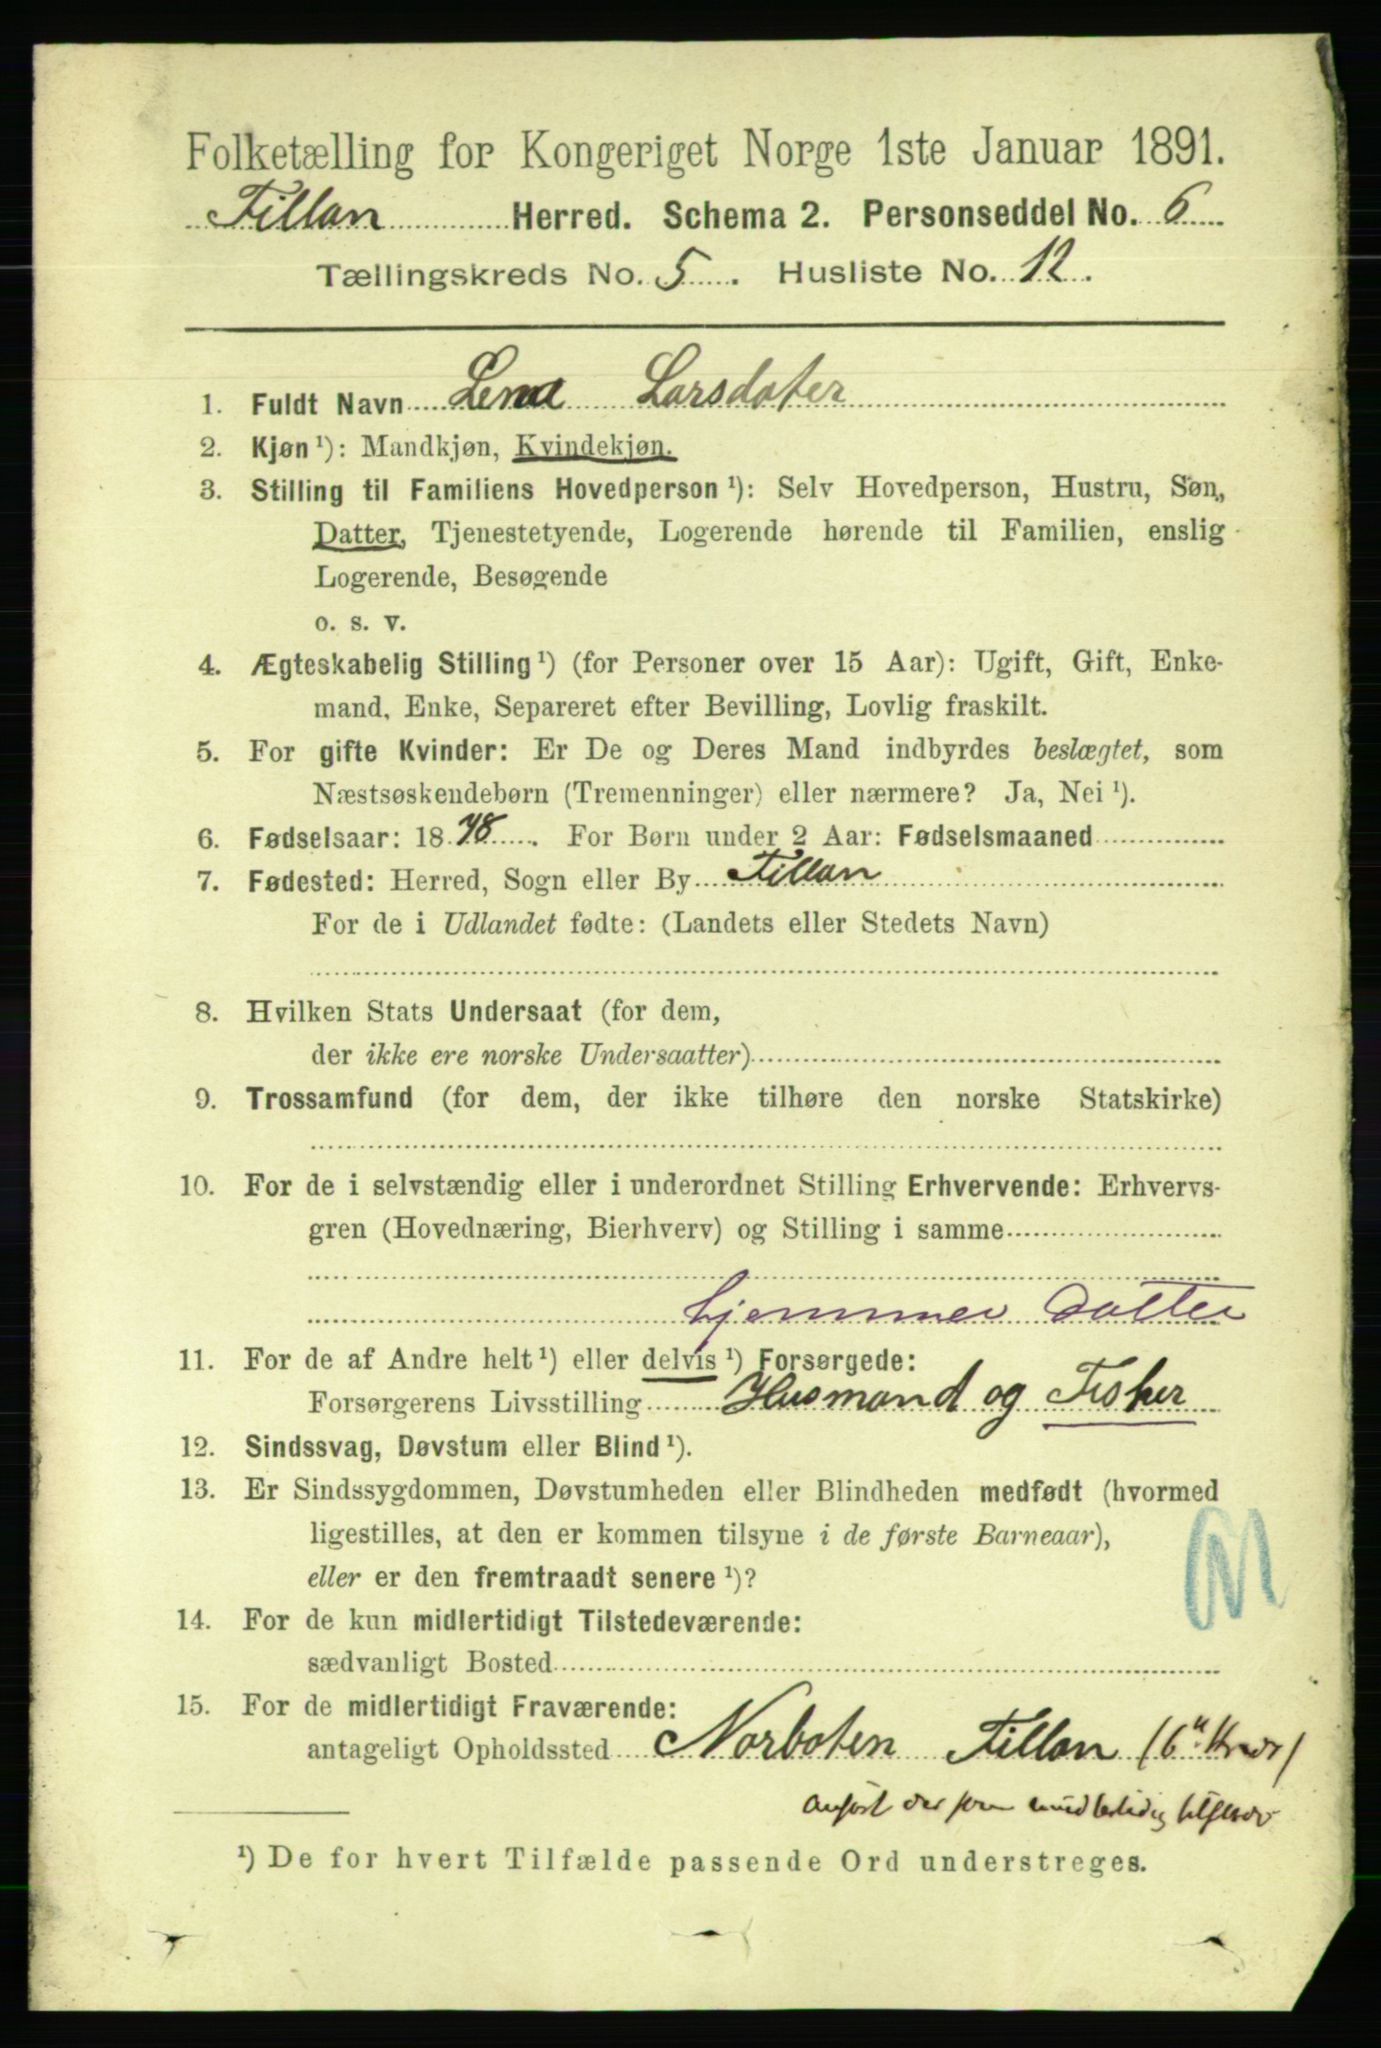 Folketælling for Kongeriget Norge 1ste Januar 1891.
Fillan Herred. Schema 2. Personseddel No. 6
Tællingskreds No. 5. Husliste No. 12.
1. Fuldt Navn Lena Larsdater
2. Kjøn¹): Mandkjøn, Kvindekjøn.
3. Stilling til Familiens Hovedperson¹): Selv Hovedperson, Hustru, Søn,
Datter, Tjenestetyende, Logerende hørende til Familien, enslig
Logerende, Besøgende
o. s. v.
4. Ægteskabelig Stilling¹) (for Personer over 15 Aar): Ugift, Gift, Enke-
mand, Enke, Separeret efter Bevilling, Lovlig fraskilt.
5. For gifte Kvinder: Er De og Deres Mand indbyrdes beslægtet, som
Næstsøskendebørn (Tremenninger) eller nærmere? Ja, Nei¹).
6. Fødselsaar: 1878. For Børn under 2 Aar: Fødselsmaaned
7. Fødested: Herred, Sogn eller By Fillan
For de i Udlandet fødte: (Landets eller Stedets Navn)
8. Hvilken Stats Undersaat (for dem,
der ikke ere norske Undersaatter)
9. Trossamfund (for dem, der ikke tilhøre den norske Statskirke)
10. For de i selvstændig eller i underordnet Stilling Erhvervende: Erhvervs-
gren (Hovednæring, Bierhverv) og Stilling i samme
hjemmev Datter
11. For de af Andre helt¹) eller delvis¹) Forsørgede:
Forsørgerens Livsstilling Husmand og Fisker
12. Sindssvag, Døvstum eller Blind¹).
13. Er Sindssygdommen, Døvstumheden eller Blindheden medfødt (hvormed
ligestilles, at den er kommen tilsyne i de første Barneaar),
eller er den fremtraadt senere¹)?
14. For de kun midlertidigt Tilstedeværende:
sædvanligt Bosted
15. For de midlertidigt Fraværende:
antageligt Opholdssted Norboten Fillan (6
anført der som midlertidig
¹) De for hvert Tilfælde passende Ord understreges.